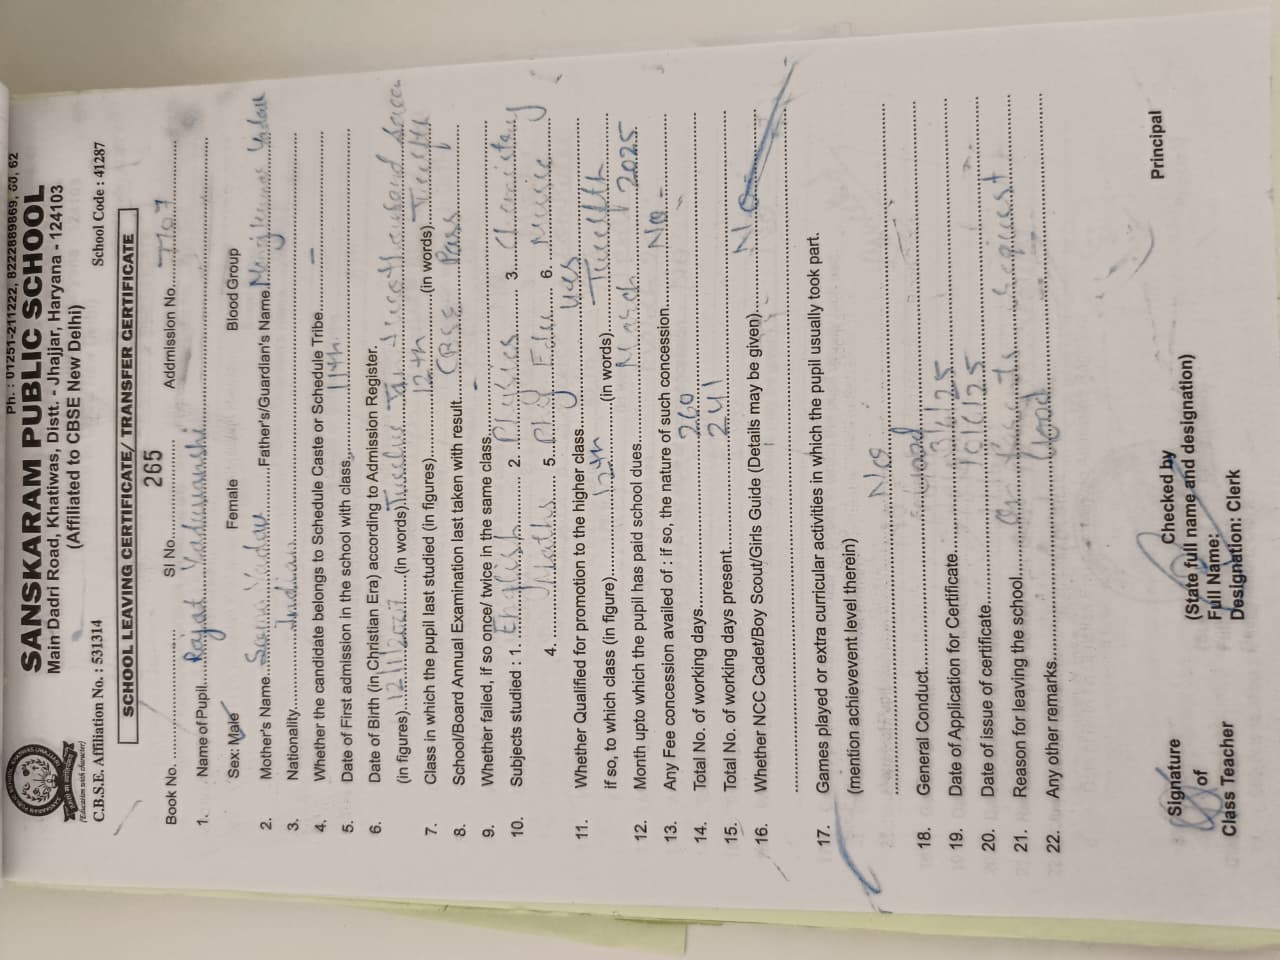 Ph. : 01251-211222, 8222889869, 60, 62
SANSKARAM PUBLIC SCHOOL
Main Dadri Road, Khatiwas, Distt. - Jhajjar, Haryana - 124103
(Affiliated to CBSE New Delhi)
(Education with character)
C.B.S.E. Affiliation No. : 531314 School Code : 41287
SCHOOL LEAVING CERTIFICATE/ TRANSFER CERTIFICATE
Book No. Sl No. 265 Addmission No. 7707
1. Name of Pupil Rajat Yaduvanshi
Sex: Male Female Blood Group
2. Mother's Name Yadav Father's/Guardian's Name Yadav
3. Nationality Indian
4. Whether the candidate belongs to Schedule Caste or Schedule Tribe. -
5. Date of First admission in the school with class 11th
6. Date of Birth (in Christian Era) according to Admission Register.
(in figures) 12/11/2007 (in words) Twelve
7. Class in which the pupil last studied (in figures) 12th (in words) Twelfth
8. School/Board Annual Examination last taken with result CBSE Pass
9. Whether failed, if so once/ twice in the same class. -
10. Subjects studied : 1. English 2. Physics 3. Chemistry
4. Maths 5. Phy Edu 6. Music
11. Whether Qualified for promotion to the higher class yes
if so, to which class (in figure) 12th (in words) Twelfth
12. Month upto which the pupil has paid school dues March 2025
13. Any Fee concession availed of : if so, the nature of such concession No -
14. Total No. of working days 260
15. Total No. of working days present 241
16. Whether NCC Cadet/Boy Scout/Girls Guide (Details may be given) No
17. Games played or extra curricular activities in which the pupil usually took part.
(mention achievevent level therein)
No
18. General Conduct Good
19. Date of Application for Certificate /6/25
20. Date of issue of certificate /6/25
21. Reason for leaving the school request
22. Any other remarks Good
Signature
of
Class Teacher
Checked by
(State full name and designation)
Full Name:
Designation: Clerk
Principal